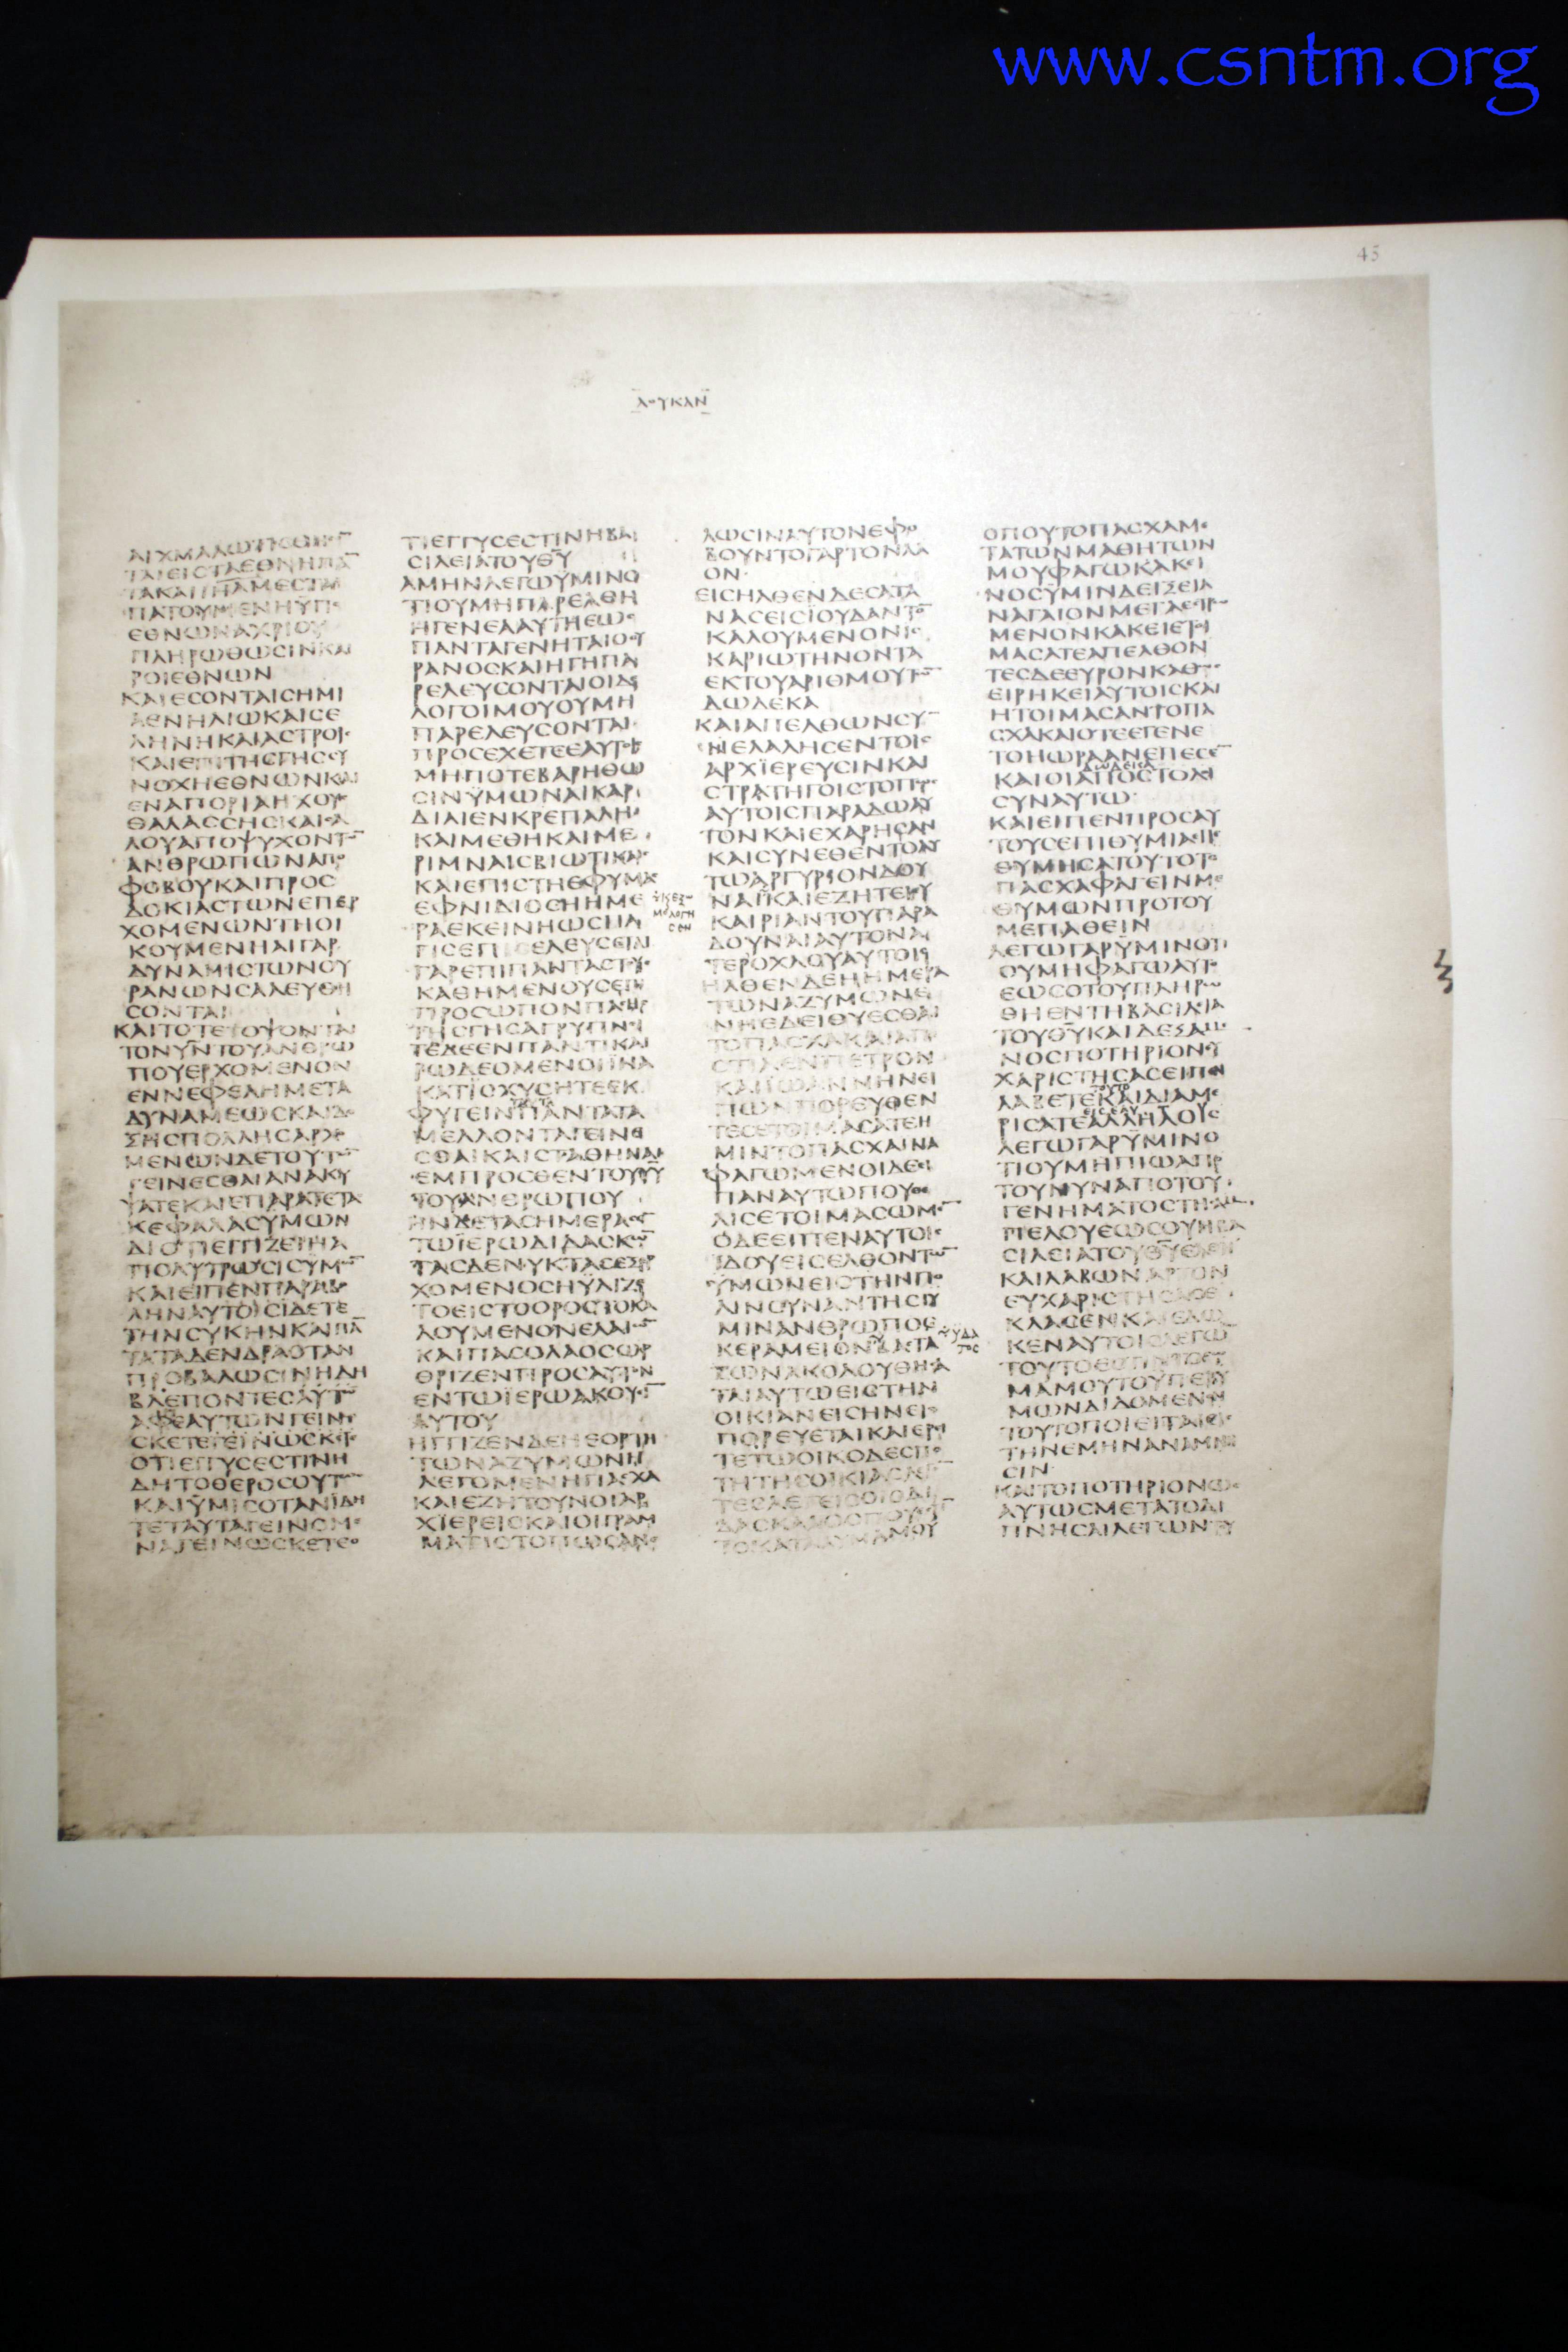 www.csntm.org
45
ΛΟΥΚΑΝ
ΕΘΝΩΝΑΧΡΙΟΥ
ΠΛΗΡΩΘΩCΙΝΚΑΙ
ΡΟΙΕΘΝΩΝ
ΚΑΙΕCΟΝΤΑΙCΗΜΙ
ΑΕΝΗΛΙΩΚΑΙCΕ
ΛΗΝΗΚΑΙΑCΤΡΟΙC
ΚΑΙΕΠΙΤΗCΓΗCCΥ
ΝΟΧΗΕΘΝΩΝΚΑΙ
ΕΝΑΠΟΡΙΑΗΧΟΥC
ΘΑΛΑCCΗCΚΑΙCΑ
ΛΟΥΑΠΟΨΥΧΟΝΤΩ̅
ΑΝΘΡΩΠΩΝΑΠΟ
ΦΟΒΟΥΚΑΙΠΡΟC
ΔΟΚΙΑCΤΩΝΕΠΕΡ
ΧΟΜΕΝΩΝΤΗΟΙ
ΚΟΥΜΕΝΗΑΙΓΑΡ
ΔΥΝΑΜΙCΤΩΝΟΥ
ΡΑΝΩΝCΑΛΕΥΘΗ
CΟΝΤΑΙ
ΚΑΙΤΟΤΕΟΨΟΝΤΑΙ
ΤΟΝΥ̅Ν̅ΤΟΥΑΝΘΡΩ
ΠΟΥΕΡΧΟΜΕΝΟΝ
ΕΝΝΕΦΕΛΗΜΕΤΑ
ΔΥΝΑΜΕΩCΚΑΙΔΟ
ΞΗCΠΟΛΛΗCΑΡΧΟ
ΜΕΝΩΝΔΕΤΟΥΤΩ̅
ΓΕΙΝΕCΘΑΙΑΝΑΚΥ
ΨΑΤΕΚΑΙΕΠΑΡΑΤΕΤΑC
ΚΕΦΑΛΑCΥΜΩΝ
ΔΙΟΤΙΕΓΓΙΖΕΙΗΑ
ΠΟΛΥΤΡΩCΙCΥΜΩ̅
ΚΑΙΕΙΠΕΝΠΑΡΑΒΟ
ΛΗΝΑΥΤΟΙCΙΔΕΤΕ
ΤΗΝCΥΚΗΝΚΑΙΠΑ̅
ΤΑΤΑΔΕΝΔΡΑΟΤΑΝ
ΠΡΟΒΑΛΩCΙΝΗΔΗ
ΟΤΙΕΓΓΥCΕCΤΙΝΗ
ΔΗΤΟΘΕΡΟCΟΥΤΩ̅
ΚΑΙΫΜΙCΟΤΑΝΪΔΗ
ΤΕΤΑΥΤΑΓΕΙΝΟΜΕ
ΝΑΓΕΙΝΩCΚΕΤΕΟ
ΤΙΕΓΓΥCΕCΤΙΝΗΒΑ
CΙΛΕΙΑΤΟΥΘ̅Υ̅
ΑΜΗΝΛΕΓΩΫΜΙΝΟ
ΤΙΟΥΜΗΠΑΡΕΛΘΗ
ΗΓΕΝΕΑΑΥΤΗΕΩC
ΠΑΝΤΑΓΕΝΗΤΑΙΟΟΥ
ΡΑΝΟCΚΑΙΗΓΗΠΑ
ΡΕΛΕΥCΟΝΤΑΙΟΙΔΕ
ΛΟΓΟΙΜΟΥΟΥΜΗ
ΠΑΡΕΛΕΥCΟΝΤΑΙ
ΠΡΟCΕΧΕΤΕΕΑΥΤΟΙC
ΜΗΠΟΤΕΒΑΡΗΘΩ
CΙΝΫΜΩΝΑΙΚΑΡ
ΔΙΑΙΕΝΚΡΕΠΑΛΗ
ΚΑΙΜΕΘΗΚΑΙΜΕ
ΡΙΜΝΑΙCΒΙΩΤΙΚΑΙC
ΚΑΙΕΠΙCΤΗΕΦΥΜΑC
ΕΦΝΙΔΙΟCΗΗΜΕ
ΡΑΕΚΕΙΝΗΩCΠΑ
ΓΑΡΕΠΙΠΑΝΤΑCΤΟΥC
ΚΑΘΗΜΕΝΟΥCΕΠΙ
ΠΡΟCΩΠΟΝΠΑCΗC
ΤΗCΓΗCΑΓΡΥΠΝΙ
ΤΕΔΕΕΝΠΑΝΤΙΚΑΙ
ΡΩΔΕΟΜΕΝΟΙΪΝΑ
ΚΑΤΙCΧΥCΗΤΕΕΚ
ΦΥΓΕΙΝΠΑΝΤΑΤΑ
ΜΕΛΛΟΝΤΑΓΕΙΝΕ
CΘΑΙΚΑΙCΤΑΘΗΝΑΙ
ΕΜΠΡΟCΘΕΝΤΟΥΥ̅Υ̅
ΤΟΥΑΝΘΡΩΠΟΥ
ΗΝΔΕΤΑCΗΜΕΡΑCΕ̅
ΤΩΪΕΡΩΔΙΔΑCΚΩ̅
ΤΑCΔΕΝΥΚΤΑCΕΞΕΡ
ΧΟΜΕΝΟCΗΫΛΙΖΕ
ΤΟΕΙCΤΟΟΡΟCΤΟΚΑ
ΛΟΥΜΕΝΟΝΕΛΑΙΩ̅
ΚΑΙΠΑCΟΛΑΟCΩΡ
ΘΡΙΖΕΝΠΡΟCΑΥΤΟΝ
ΕΝΤΩΪΕΡΩΑΚΟΥΕΙ̅
ΑΥΤΟΥ
ΗΓΓΙΖΕΝΔΕΗΕΟΡΤΗ
ΤΩΝΑΖΥΜΩΝΗ
ΛΕΓΟΜΕΝΗΠΑCΧΑ
ΚΑΙΕΖΗΤΟΥΝΟΙΑΡ
ΧΪΕΡΕΙCΚΑΙΟΙΓΡΑΜ
ΜΑΤΙCΤΟΠΩCΑΝΕ
ΛΩCΙΝΑΥΤΟΝΕΦΟ
ΒΟΥΝΤΟΓΑΡΤΟΝΛΑ
ΟΝ
ΕΙCΗΛΘΕΝΔΕCΑΤΑ
ΝΑCΕΙCΪΟΥΔΑΝΤΟ̅
ΚΑΛΟΥΜΕΝΟΝΙC
ΚΑΡΙΩΤΗΝΟΝΤΑ
ΕΚΤΟΥΑΡΙΘΜΟΥΤΩ̅
ΔΩΔΕΚΑ
ΚΑΙΑΠΕΛΘΩΝCΥ̅
ΕΛΑΛΗCΕΝΤΟΙC
ΑΡΧΪΕΡΕΥCΙΝΚΑΙ
CΤΡΑΤΗΓΟΙCΤΟΠΩC
ΑΥΤΟΙCΠΑΡΑΔΩΑΥ
ΤΟΝΚΑΙΕΧΑΡΗCΑΝ
ΚΑΙCΥΝΕΘΕΝΤΟΑΥ
ΤΩΑΡΓΥΡΙΟΝΔΟΥ
ΝΑΙΚΑΙΕΖΗΤΕΙΕΥ
ΚΑΙΡΙΑΝΤΟΥΠΑΡΑ
ΔΟΥΝΑΙΑΥΤΟΝΑ
ΤΕΡΟΧΛΟΥΑΥΤΟΙC
ΗΛΘΕΝΔΕΗΗΜΕΡΑ
ΤΩΝΑΖΥΜΩΝΕ
ΝΗΕΔΕΙΘΥΕCΘΑΙ
ΤΟΠΑCΧΑΚΑΙΑΠΕ
CΤΙΛΕΝΠΕΤΡΟΝ
ΚΑΙΪΩΑΝΝΗΝΕΙ
ΠΩΝΠΟΡΕΥΘΕΝ
ΤΕCΕΤΟΙΜΑCΑΤΕΗ
ΜΙΝΤΟΠΑCΧΑΙΝΑ
ΦΑΓΩΜΕΝΟΙΔΕΕΙ
ΠΑΝΑΥΤΩΠΟΥΘΕ
ΛΙCΕΤΟΙΜΑCΩΜΕ̅
ΟΔΕΕΙΠΕΝΑΥΤΟΙC
ΪΔΟΥΕΙCΕΛΘΟΝΤΩ̅
ΫΜΩΝΕΙCΤΗΝΠΟ
ΛΙΝCΥΝΑΝΤΗCΙΫ
ΜΙΝΑΝΘΡΩΠΟC
ΚΕΡΑΜΕΙΟΝΒΑCΤΑ
ΖΩΝΑΚΟΛΟΥΘΗCΑ
ΤΑΙΑΥΤΩΕΙCΤΗΝ
ΟΙΚΙΑΝΕΙCΗΝΕΙC
ΠΟΡΕΥΕΤΑΙΚΑΙΕΡΙ
ΤΕΤΩΟΙΚΟΔΕCΠΟ
ΟΠΟΥΤΟΠΑCΧΑΜΕ
ΤΑΤΩΝΜΑΘΗΤΩΝ
ΜΟΥΦΑΓΩΚΑΚΕΙ
ΝΟCΫΜΙΝΔΕΙΞΕΙΑ
ΝΑΓΑΙΟΝΜΕΓΑΕCΤΡΩ̅
ΜΕΝΟΝΚΑΚΕΙΕΤΟΙ
ΜΑCΑΤΕΑΠΕΛΘΟΝ
ΤΕCΔΕΕΥΡΟΝΚΑΘΩC
ΕΙΡΗΚΕΙΑΥΤΟΙCΚΑΙ
ΗΤΟΙΜΑCΑΝΤΟΠΑ
CΧΑΚΑΙΟΤΕΕΓΕΝΕ
ΤΟΗΩΡΑΑΝΕΠΕCΕ̅
ΔΩΔΕΚΑ
ΚΑΙΟΙΑΠΟCΤΟΛΟΙ
CΥΝΑΥΤΩ
ΚΑΙΕΙΠΕΝΠΡΟCΑΥ
ΤΟΥCΕΠΙΘΥΜΙΑΕΠΕ
ΘΥΜΗCΑΤΟΥΤΟΤΟ
ΠΑCΧΑΦΑΓΕΙΝΜΕ
ΘΥΜΩΝΠΡΟΤΟΥ
ΜΕΠΑΘΕΙΝ
ΛΕΓΩΓΑΡΫΜΙΝΟΤΙ
ΟΥΜΗΦΑΓΩΑΥΤΟ
ΕΩCΟΤΟΥΠΛΗΡΩ
ΘΗΕΝΤΗΒΑCΙΛΕΙΑ
ΤΟΥΘ̅Υ̅ΚΑΙΔΕΞΑΜΕ
ΝΟCΠΟΤΗΡΙΟΝΕΥ
ΧΑΡΙCΤΗCΑCΕΙΠΕΝ
ΤΟΥΤΟ
ΛΑΒΕΤΕΚΑΙΔΙΑΜΕ
ΡΙCΑΤΕΑΛΛΗΛΟΙC
ΛΕΓΩΓΑΡΫΜΙΝΟ
ΤΙΟΥΜΗΠΙΩΑΠΟ
ΤΟΥΝΥΝΑΠΟΤΟΥ
ΓΕΝΗΜΑΤΟCΤΗCΑΜ
ΠΕΛΟΥΕΩCΟΥΗΒΑ
CΙΛΕΙΑΤΟΥΘ̅Υ̅ΕΛΘΗ
ΚΑΙΛΑΒΩΝΑΡΤΟΝ
ΕΥΧΑΡΙCΤΗCΑCΕ
ΚΛΑCΕΝΚΑΙΕΔΩ
ΚΕΝΑΥΤΟΙCΛΕΓΩ̅
ΤΟΥΤΟΕCΤΙΝΤΟCΩ
ΜΑΜΟΥΤΟΫΠΕΡΫ
ΜΩΝΔΙΔΟΜΕΝΟΝ
ΤΟΥΤΟΠΟΙΕΙΤΑΙΕΙC
ΤΗΝΕΜΗΝΑΝΑΜΝΗ
CΙΝ
ΚΑΙΤΟΠΟΤΗΡΙΟΝΩC
ΑΥΤΩCΜΕΤΑΤΟΔΙ
ΠΝΗCΑΙΛΕΓΩΝΤΥ